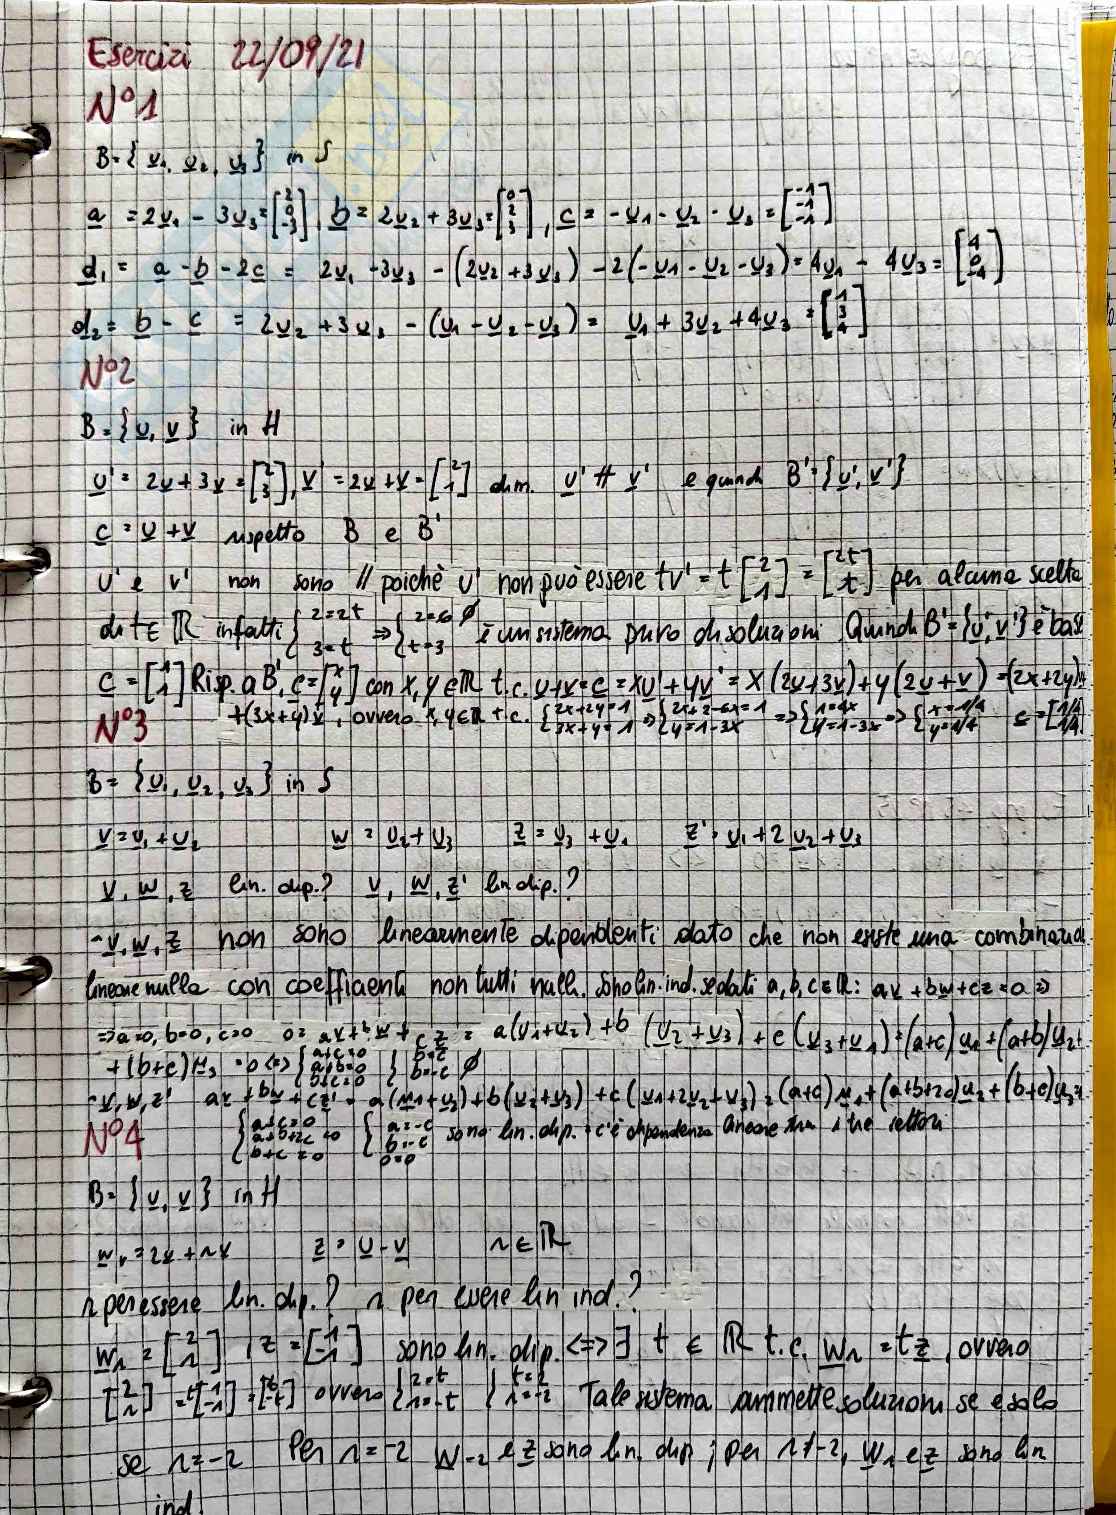 Esercizi 22/09/21
N°1
B={v1, v2, v3} in S
a = 2v1 - 3v3 = [2 0 -3], b = 2v2 + 3v3 = [0 2 3], c = -v1 - v2 - v3 = [-1 -1 -1]
d1 = a - b - 2c = 2v1 - 3v3 - (2v2 + 3v3) - 2(-v1 - v2 - v3) = 4v1 - 4v3 = [4 0 -4]
d2 = b - c = 2v2 + 3v3 - (v1 - v2 - v3) = v1 + 3v2 + 4v3 = [1 3 4]
N°2
B={u, v} in H
u' = 2u + 3v = [2 3], v' = 2u + v = [2 1] dim. u' ∦ v' e quindi B'={u', v'}
c = u + v rispetto B e B'
u' e v' non sono // poichè u' non può essere tv' = t [2 1] = [2t t] per alcuna scelta
di t ∈ ℝ infatti {2=2t 3=t ⇒ {2=6 ∅ t=3 è un sistema privo di soluzioni. Quindi B'={u', v'} è base
c = [1 1] Risp. a B', c = [x y] con x, y ∈ ℝ t.c. u+v = c = xu' + yv' = x(2u+3v) + y(2u+v) = (2x+2y)u
+(3x+y)v, ovvero x, y ∈ ℝ t.c. {2x+2y=1 3x+y=1 ⇒ {2x+2-6x=1 y=1-3x ⇒ {1=4x y=1-3x ⇒ {x=1/4 y=1/4 c=[1/4 1/4]
N°3
B = {v1, v2, v3} in S
v = v1 + v2 w = v2 + v3 z = v3 + v1 z' = v1 + 2v2 + v3
v, w, z lin. dip.? v, w, z' lin dip.?
- v, w, z non sono linearmente dipendenti dato che non esiste una combinazio
lineare nulla con coefficienti non tutti nulli. Sono lin. ind. se dati a, b, c ∈ ℝ: av + bw + cz = 0 ⇒
⇒ a=0, b=0, c=0 0 = av + bw + cz = a(v1+v2) + b(v2+v3) + c(v3+v1) = (a+c)v1 + (a+b)v2 +
+ (b+c)v3 = 0 ⇔ {a+c=0 a+b=0 b+c=0 {b=c b=-c ∅
- v, w, z' av + bw + cz' = a(v1+v2) + b(v2+v3) + c(v1+2v2+v3) = (a+c)v1 + (a+b+2c)v2 + (b+c)v3 =
{a+c=0 a+b+2c=0 b+c=0 {a=-c b=-c 0=0 sono lin. dip. c'è dipendenza lineare tra i tre vettori
N°4
B = {u, v} in H
wr = 2u + rv z = u - v r ∈ ℝ
r per essere lin. dip.? r per essere lin ind.?
wr = [2 r], z = [1 -1] sono lin. dip. ⇔ ∃ t ∈ ℝ t.c. wr = tz, ovvero
[2 r] = t[1 -1] = [t -t] ovvero {2=t r=-t {t=2 r=-2 Tale sistema ammette soluzioni se e solo
se r=-2 Per r=-2 w-2 e z sono lin. dip; per r≠-2, wr e z sono lin
ind.